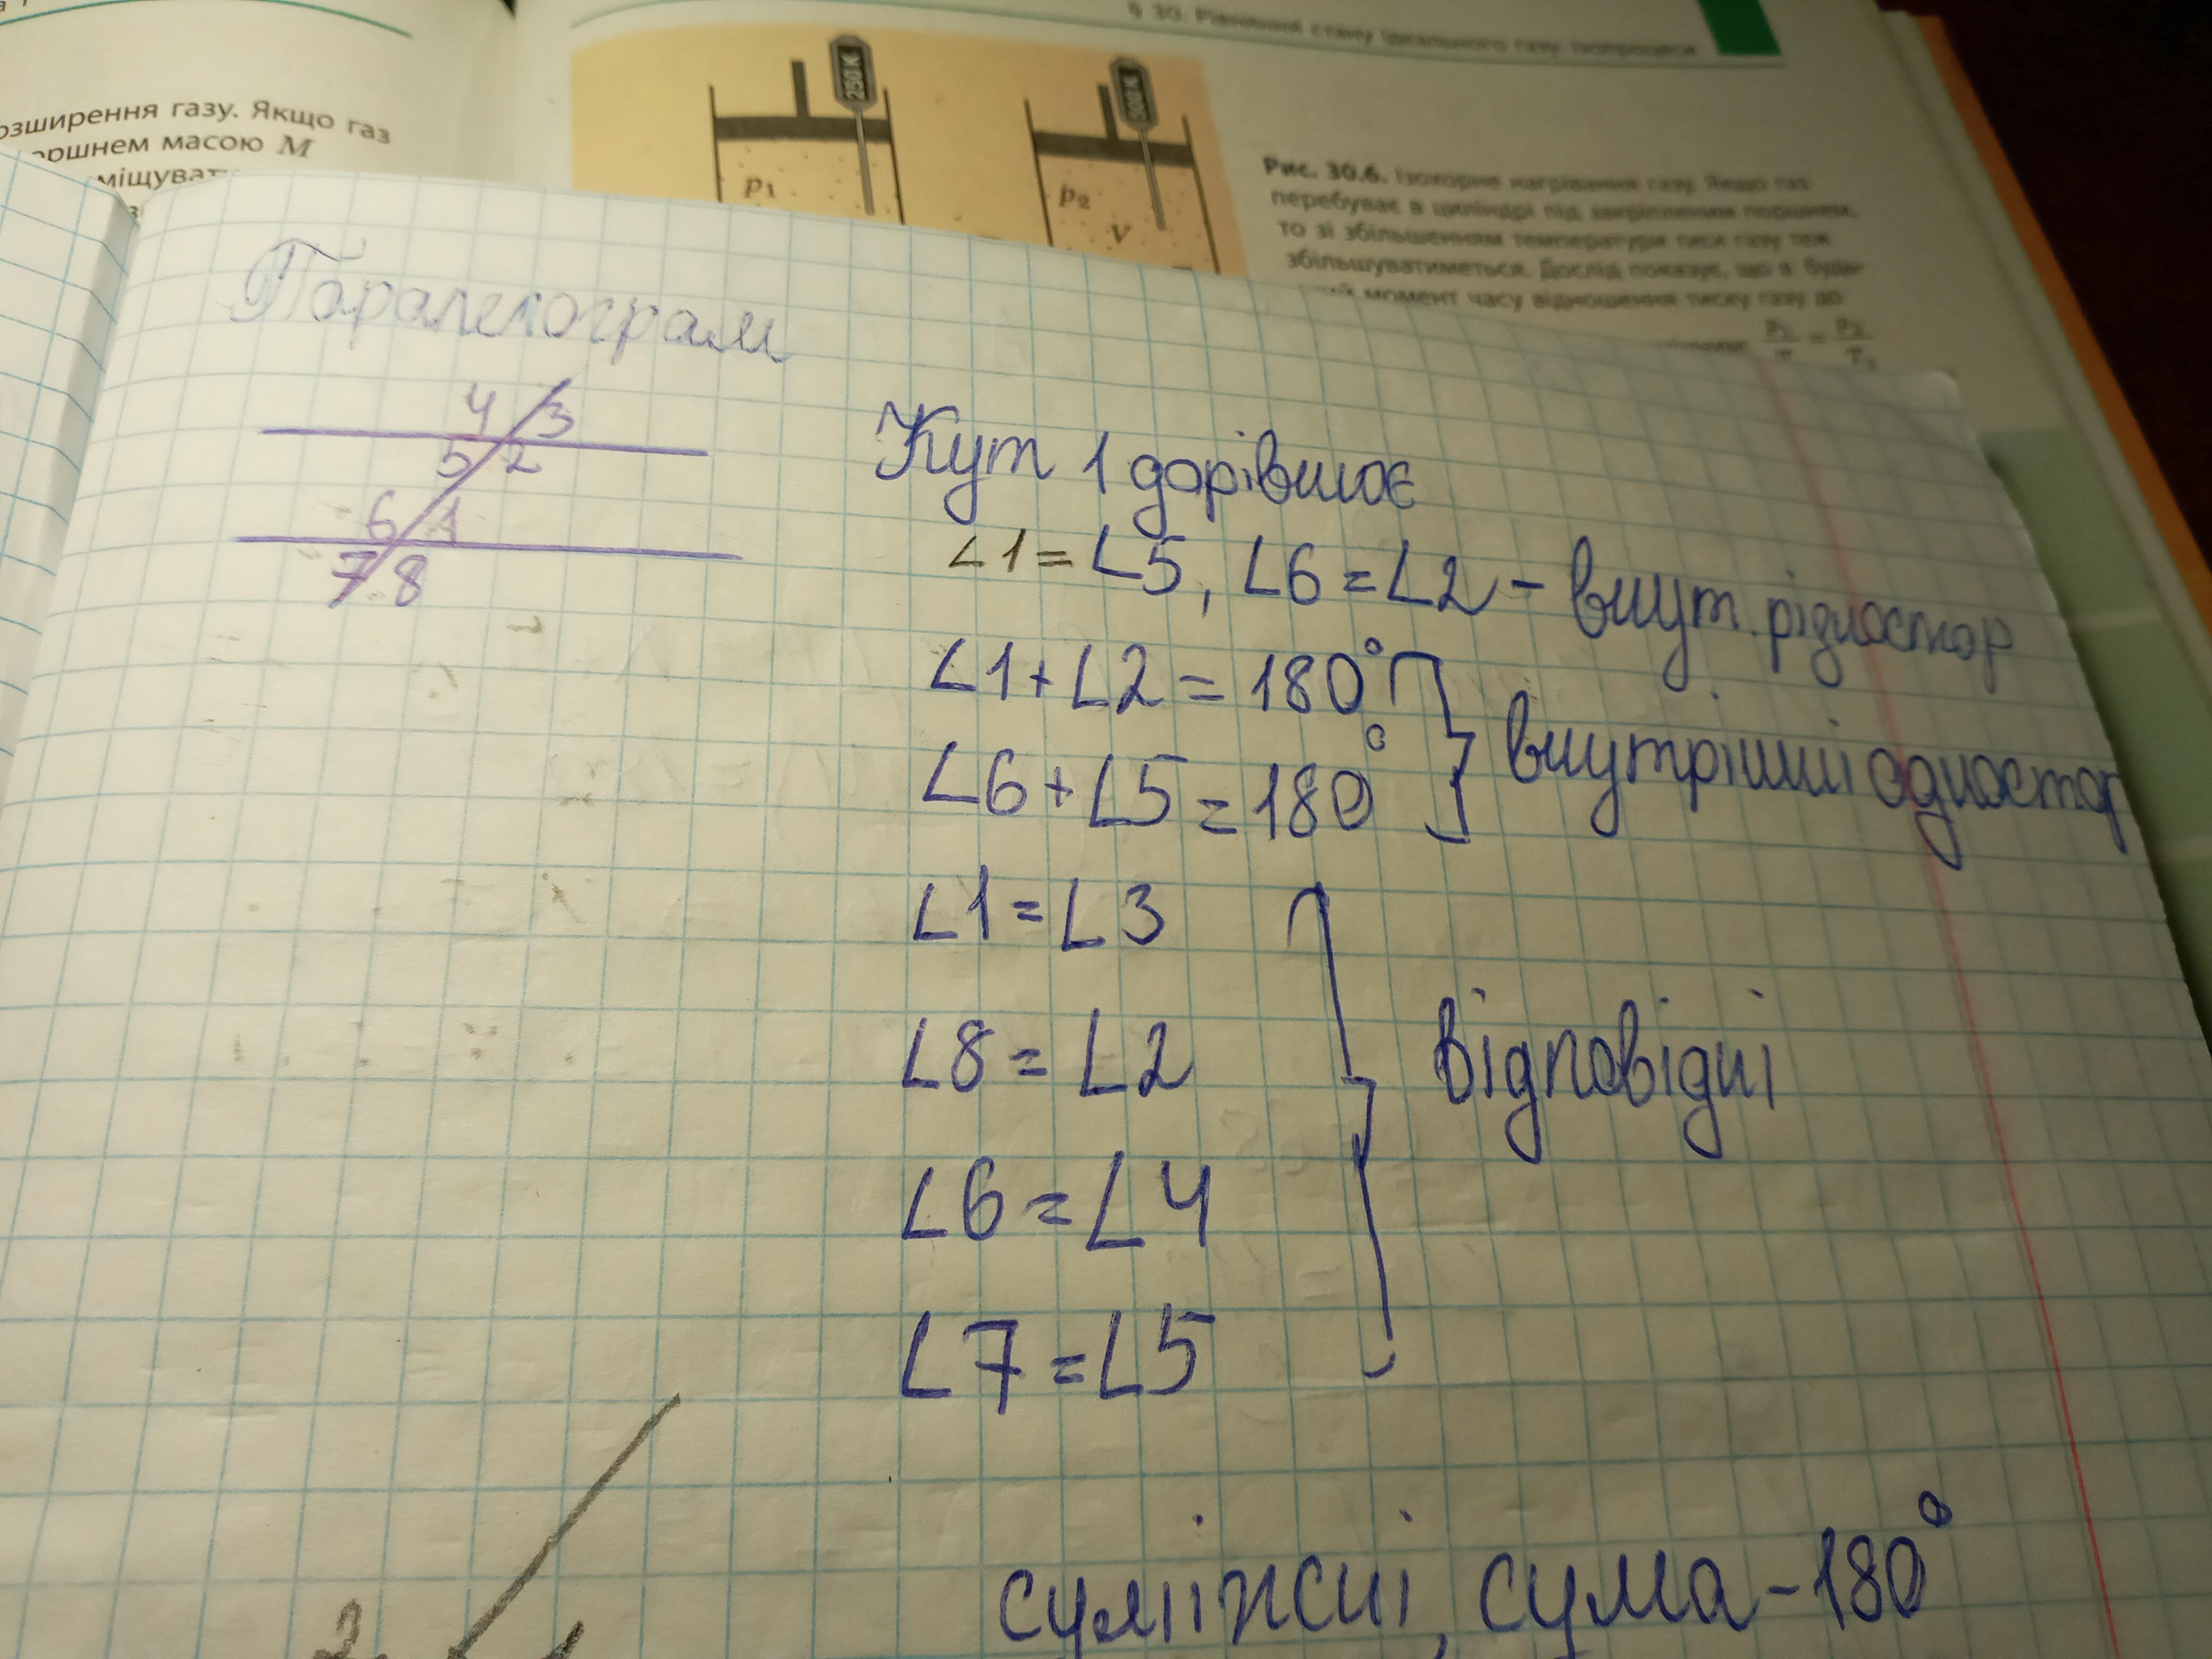 § 30. Рівняння стану ідеального газу. Ізопроцеси
озширення газу. Якщо газ
оршнем масою M
міщуват
250 K
300 K
p₁
p₂
V
Рис. 30.6. Ізохорне нагрівання газу. Якщо газ
перебуває в циліндрі під закріпленим поршнем,
то зі збільшенням температури тиск газу теж
збільшуватиметься. Дослід показує, що в будь-
момент часу відношення тиску газу до
Паралелограм
4 3
5 2
6 1
7 8
Кут 1 дорівнює
∠1 = ∠5, ∠6 = ∠2 – внут. різностор
∠1 + ∠2 = 180°
∠6 + ∠5 = 180°
внутрішні одностор
∠1 = ∠3
∠8 = ∠2
∠6 = ∠4
∠7 = ∠5
відповідні
суміжні, сума - 180°
2
1